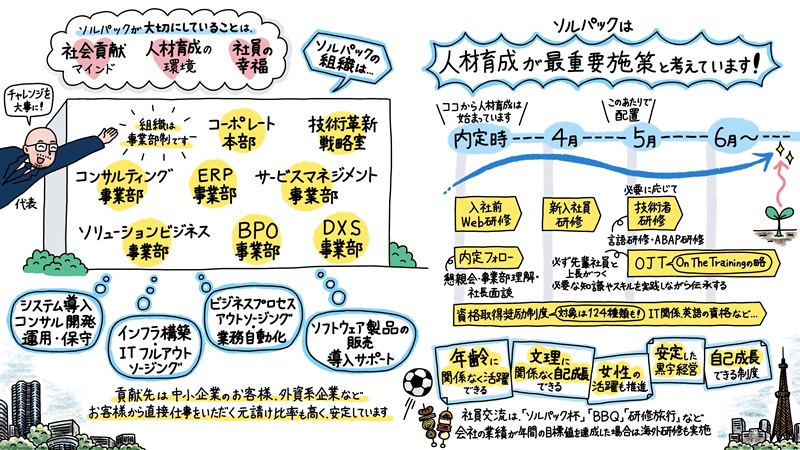 ソルパックが大切にしていることは、
社会貢献
マインド
人材育成の
環境
社員の
幸福
ソルパックの
組織は…
チャレンジを
大事に!
代表
組織は
事業部制です
コーポレート
本部
技術革新
戦略室
コンサルティング
事業部
ERP
事業部
サービスマネジメント
事業部
ソリューションビジネス
事業部
BPO
事業部
DXS
事業部
システム導入
コンサル開発
運用・保守
インフラ構築
ITフルアウト
ソージング
ビジネスプロセス
アウトソージング
業務自動化
ソフトウェア製品の
販売
導入サポート
貢献先は中小企業のお客様、外資系企業など
お客様から直接仕事をいただく元請け比率も高く、安定しています
ソルパックは
人材育成が最重要施策と考えています!
ココから人材育成は
始まっています
このあたりで
配置
内定時
4月
5月
6月〜
入社前
Web研修
新入社員
研修
必要に応じて
技術者
研修
言語研修・ABAP研修
内定フォロー
懇親会・事業部理解・
社長面談
必ず先輩社員と
上長がつく
OJT
On The Trainingの略
必要な知識やスキルを実践しながら伝承する
資格取得奨励制度
対象は124種類も!
IT関係、英語の資格など…
年齢に
関係なく活躍
できる
文理に
関係なく自己成長
できる
女性の
活躍も推進
安定した
黒字経営
自己成長
できる制度
社員交流は、「ソルパック杯」「BBQ」、「研修旅行」など
会社の業績が年間の目標値を達成した場合は海外研修も実施